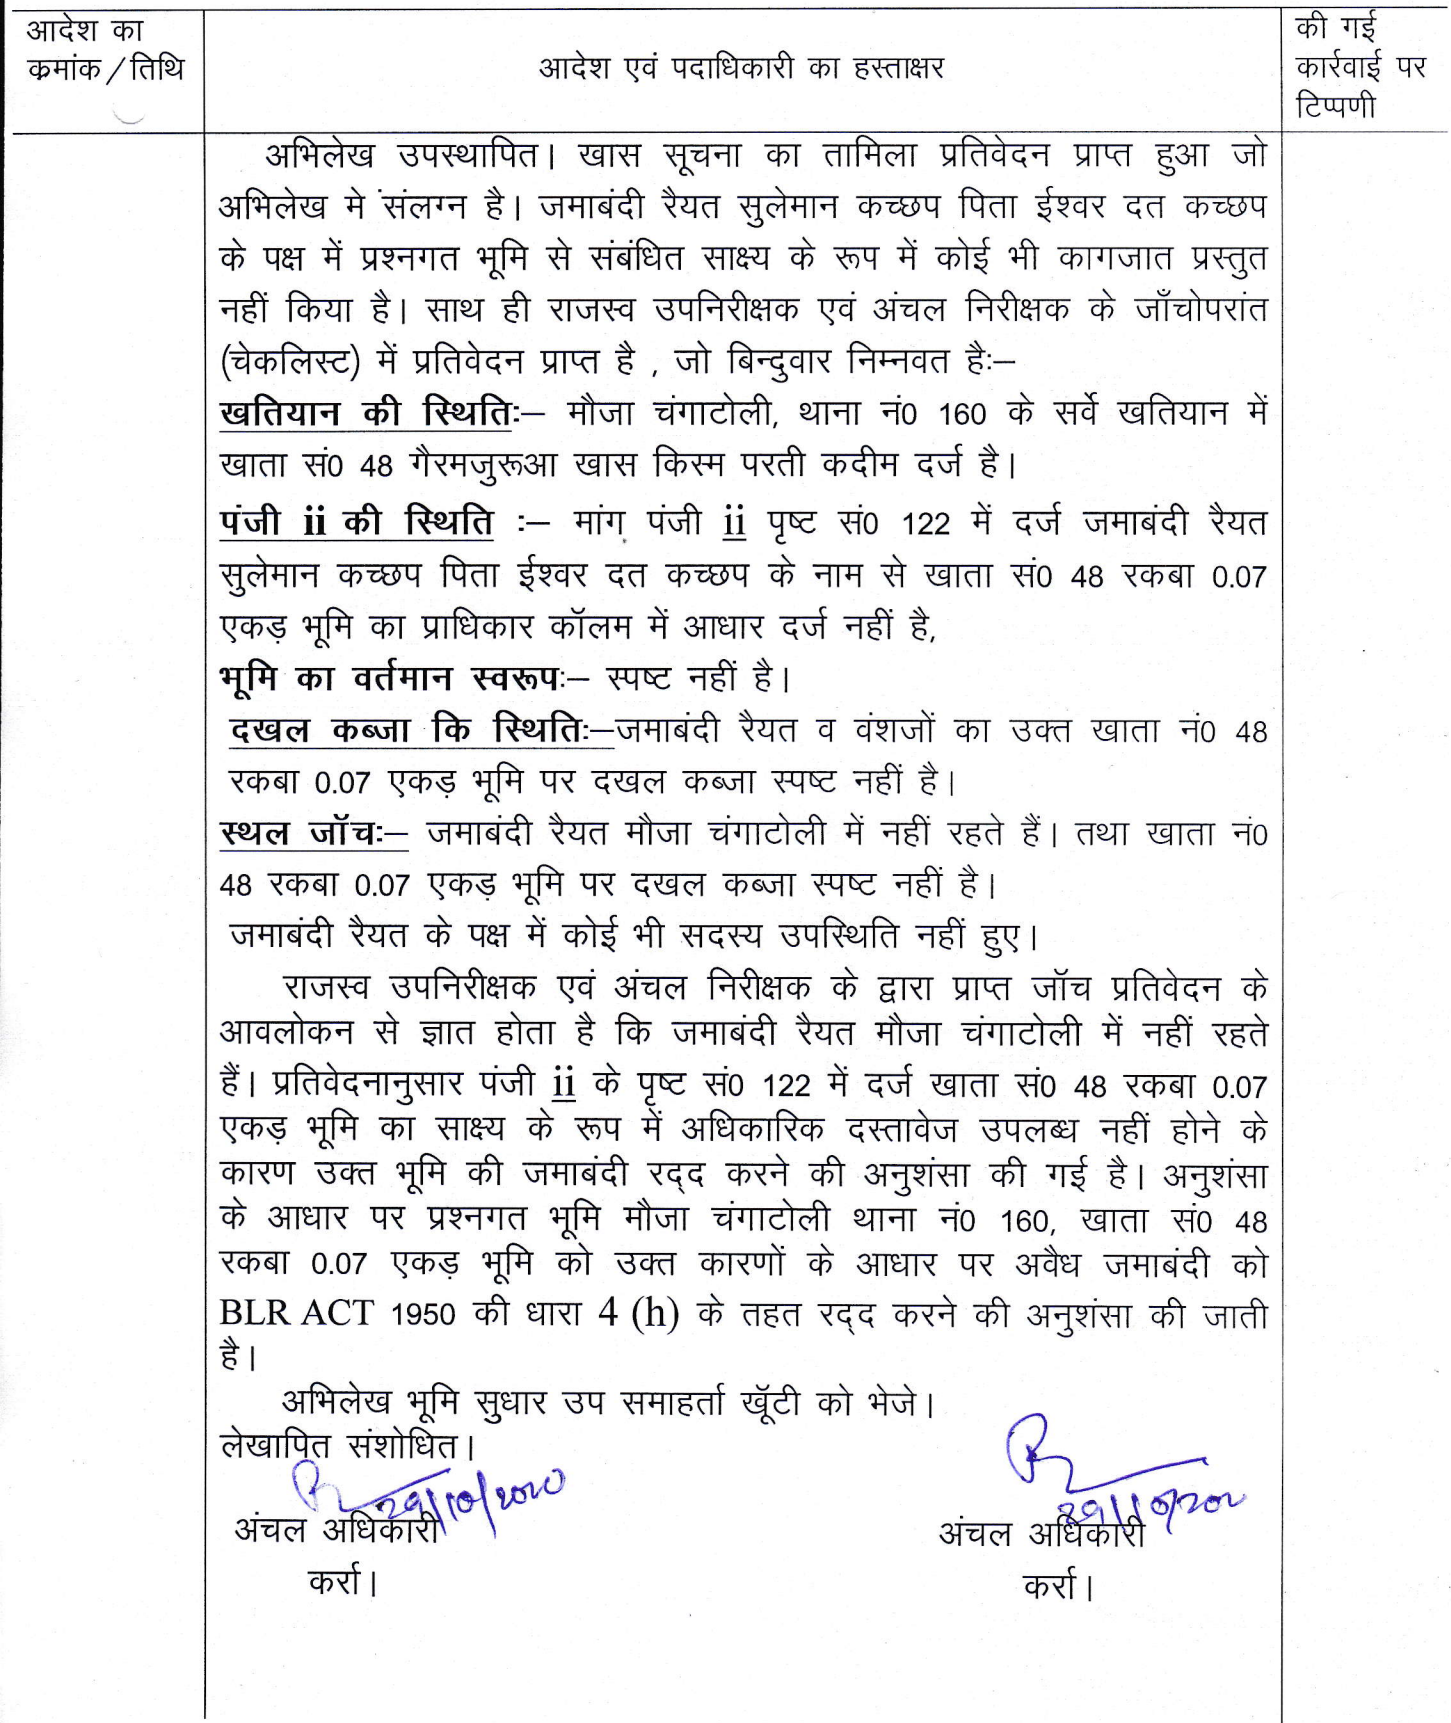 आदेश का
क्रमांक / तिथि
आदेश एवं पदाधिकारी का हस्ताक्षर
की गई
कार्रवाई पर
टिप्पणी
अभिलेख उपस्थापित। खास सूचना का तामिला प्रतिवेदन प्राप्त हुआ जो
अभिलेख मे संलग्न है। जमाबंदी रैयत सुलेमान कच्छप पिता ईश्वर दत कच्छप
के पक्ष में प्रश्नगत भूमि से संबंधित साक्ष्य के रूप में कोई भी कागजात प्रस्तुत
नहीं किया है। साथ ही राजस्व उपनिरीक्षक एवं अंचल निरीक्षक के जाँचोपरांत
(चेकलिस्ट) में प्रतिवेदन प्राप्त है , जो बिन्दुवार निम्नवत है:–
खतियान की स्थिति:– मौजा चंगाटोली, थाना नं0 160 के सर्वे खतियान में
खाता सं0 48 गैरमजुरूआ खास किस्म परती कदीम दर्ज है।
पंजी ii की स्थिति :– मांग पंजी ii पृष्ट सं0 122 में दर्ज जमाबंदी रैयत
सुलेमान कच्छप पिता ईश्वर दत कच्छप के नाम से खाता सं0 48 रकबा 0.07
एकड़ भूमि का प्राधिकार कॉलम में आधार दर्ज नहीं है,
भूमि का वर्तमान स्वरूप:– स्पष्ट नहीं है।
दखल कब्जा कि स्थिति:–जमाबंदी रैयत व वंशजों का उक्त खाता नं0 48
रकबा 0.07 एकड़ भूमि पर दखल कब्जा स्पष्ट नहीं है।
स्थल जॉच:– जमाबंदी रैयत मौजा चंगाटोली में नहीं रहते हैं। तथा खाता नं0
48 रकबा 0.07 एकड़ भूमि पर दखल कब्जा स्पष्ट नहीं है।
जमाबंदी रैयत के पक्ष में कोई भी सदस्य उपस्थिति नहीं हुए।
राजस्व उपनिरीक्षक एवं अंचल निरीक्षक के द्वारा प्राप्त जॉच प्रतिवेदन के
आवलोकन से ज्ञात होता है कि जमाबंदी रैयत मौजा चंगाटोली में नहीं रहते
हैं। प्रतिवेदनानुसार पंजी ii के पृष्ट सं0 122 में दर्ज खाता सं0 48 रकबा 0.07
एकड़ भूमि का साक्ष्य के रूप में अधिकारिक दस्तावेज उपलब्ध नहीं होने के
कारण उक्त भूमि की जमाबंदी रद्द करने की अनुशंसा की गई है। अनुशंसा
के आधार पर प्रश्नगत भूमि मौजा चंगाटोली थाना नं0 160, खाता सं0 48
रकबा 0.07 एकड़ भूमि को उक्त कारणों के आधार पर अवैध जमाबंदी को
BLR ACT 1950 की धारा 4 (h) के तहत रद्द करने की अनुशंसा की जाती
है।
अभिलेख भूमि सुधार उप समाहर्ता खूँटी को भेजे।
लेखापित संशोधित।
29/10/2020
अंचल अधिकारी
कर्रा।
29/10/202
अंचल अधिकारी
कर्रा।